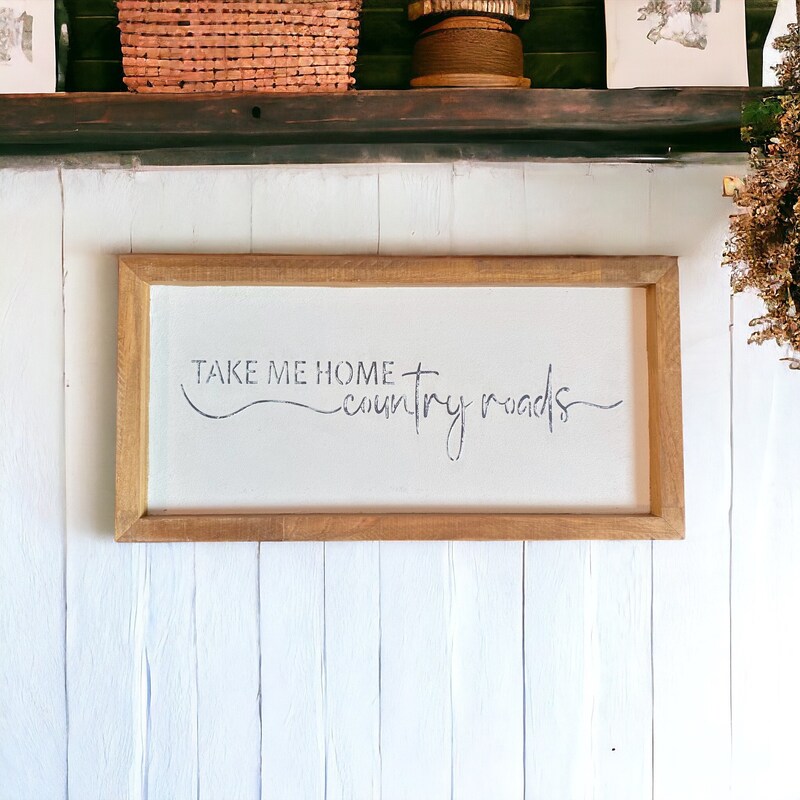 TAKE ME HOME
country roads